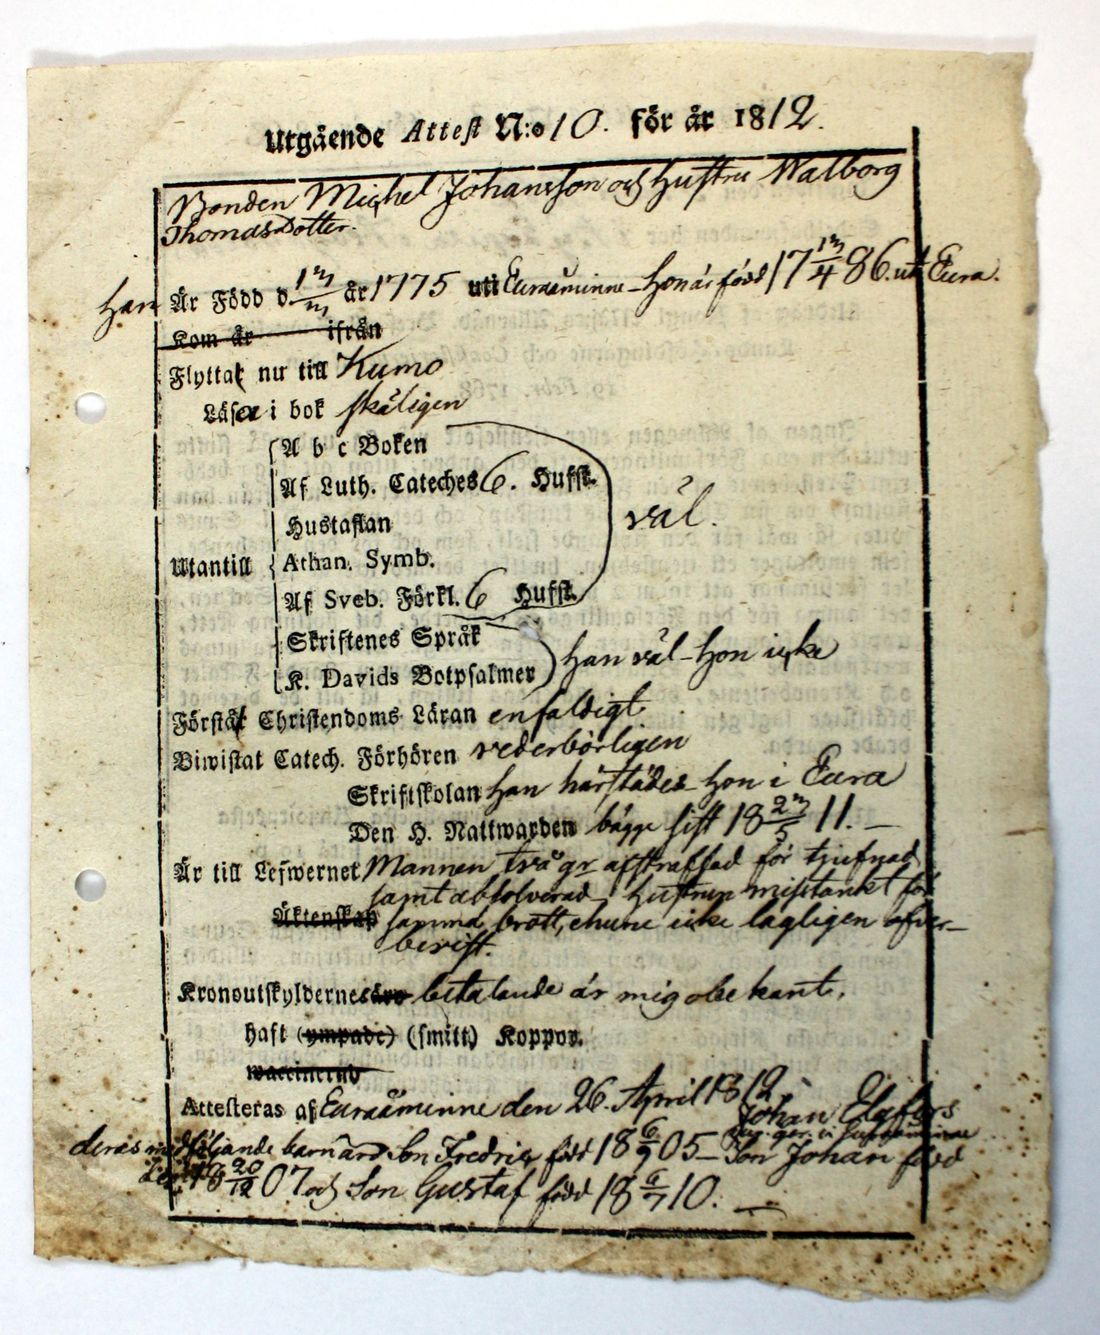 Utgående Attest N:o 10. för år 1812.
Bonden Michel Johansson och Hustru Walborg
Thomasdotter.
han Är Född d. år 1775 uti Euraåminne – hon är född 17 86. uti Eura.
Kom år ifrån
Flyttat nu till Kumo
Läsa i bok skäligen
A b c Boken
Af Luth. Cateches 6. Hufst.
Hustaflan
väl.
Utantill
Athan. Symb.
Af Sveb. Förkl. 6 Hufst.
Skriftenes Språk
han väl – hon icke
K. Davids Botpsalmer
Förstå Christendoms Läran enfaldigt
Biwistat Catech. Förhören vederbörligen
Skriftskolan han härstädes hon i Eura
Den H. Nattwarden bägge sist 18 11. –
Är till Lefwernet Mannen två gr afstraffad för tjufnad
samt absolverad, Hustrun misstänkt för
Äktenskap samma brott, ehuru icke lagligen öfver–
bevist.
Kronoutskyldernes betalande är mig obekant.
haft (ympade) (smitt.) Koppor.
waccinerad
Attesteras af Euraåminne den 26. April 1812.
Johan Elgfors
i Euraåminne
deras medföljande barn äro Son Fredric född 18 6/9 05 – Son Johan född
18 20/12 07 och Son Gustaf född 18 6/7 10. –